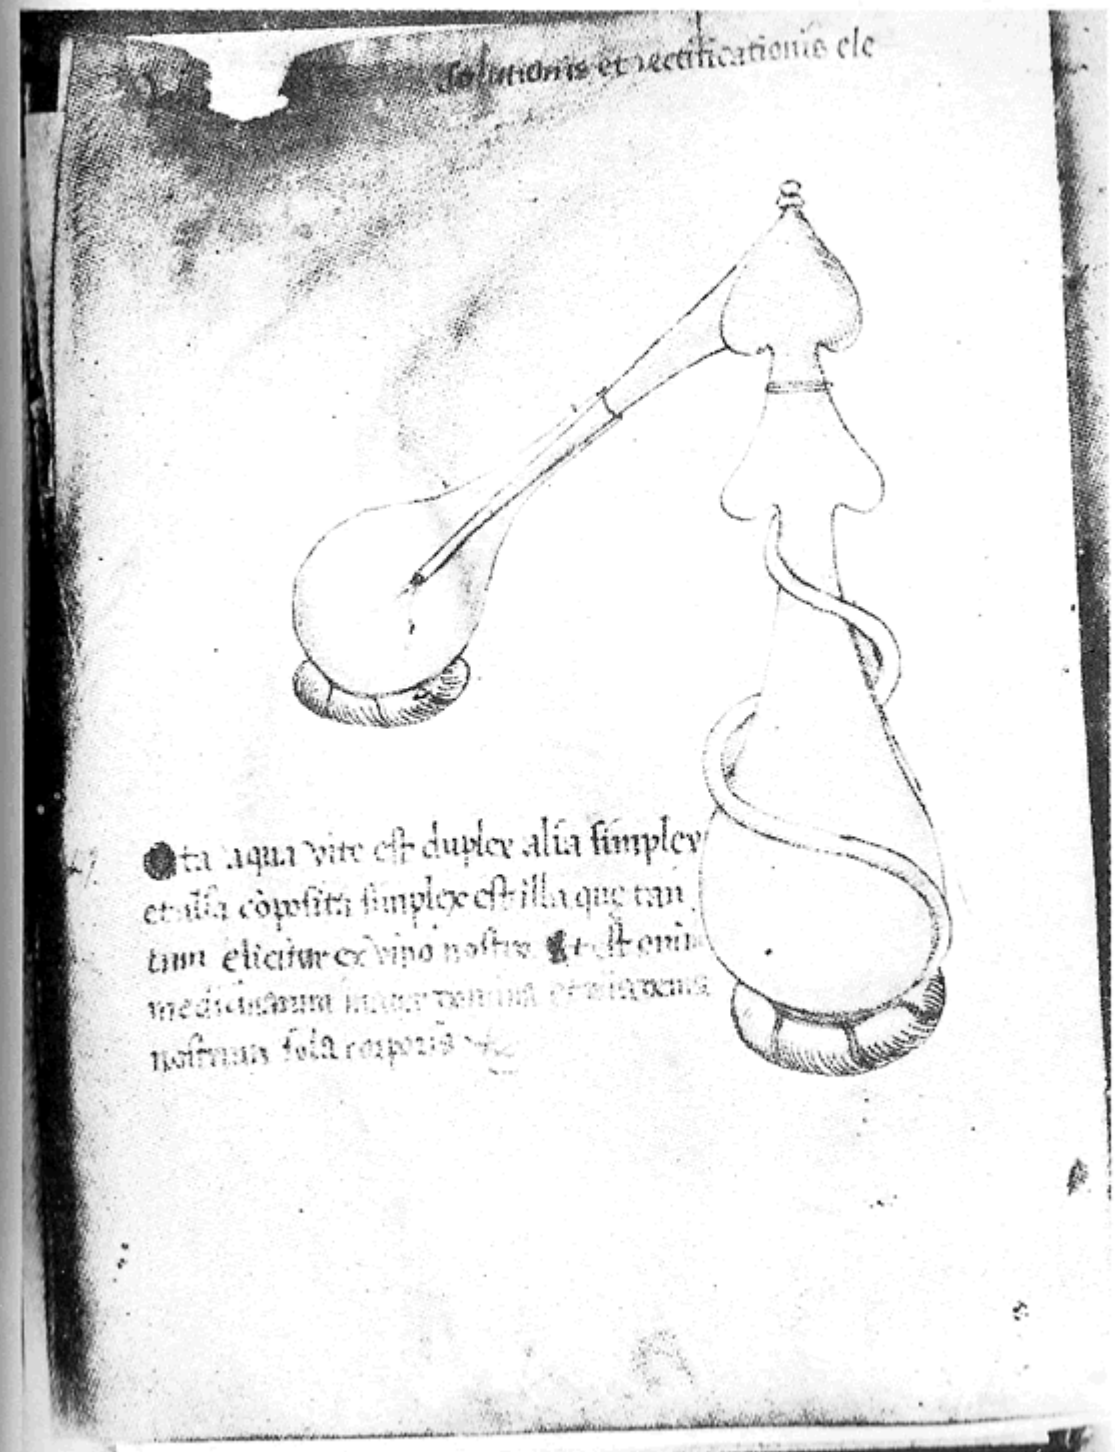 solutionis et rectificationis ele
ta aqua vite est duplex alia simplex
et alia cōposita simplex est illa que tan
tum elicitur ex vino nostro est
medicinarum
nostrum sola corporis